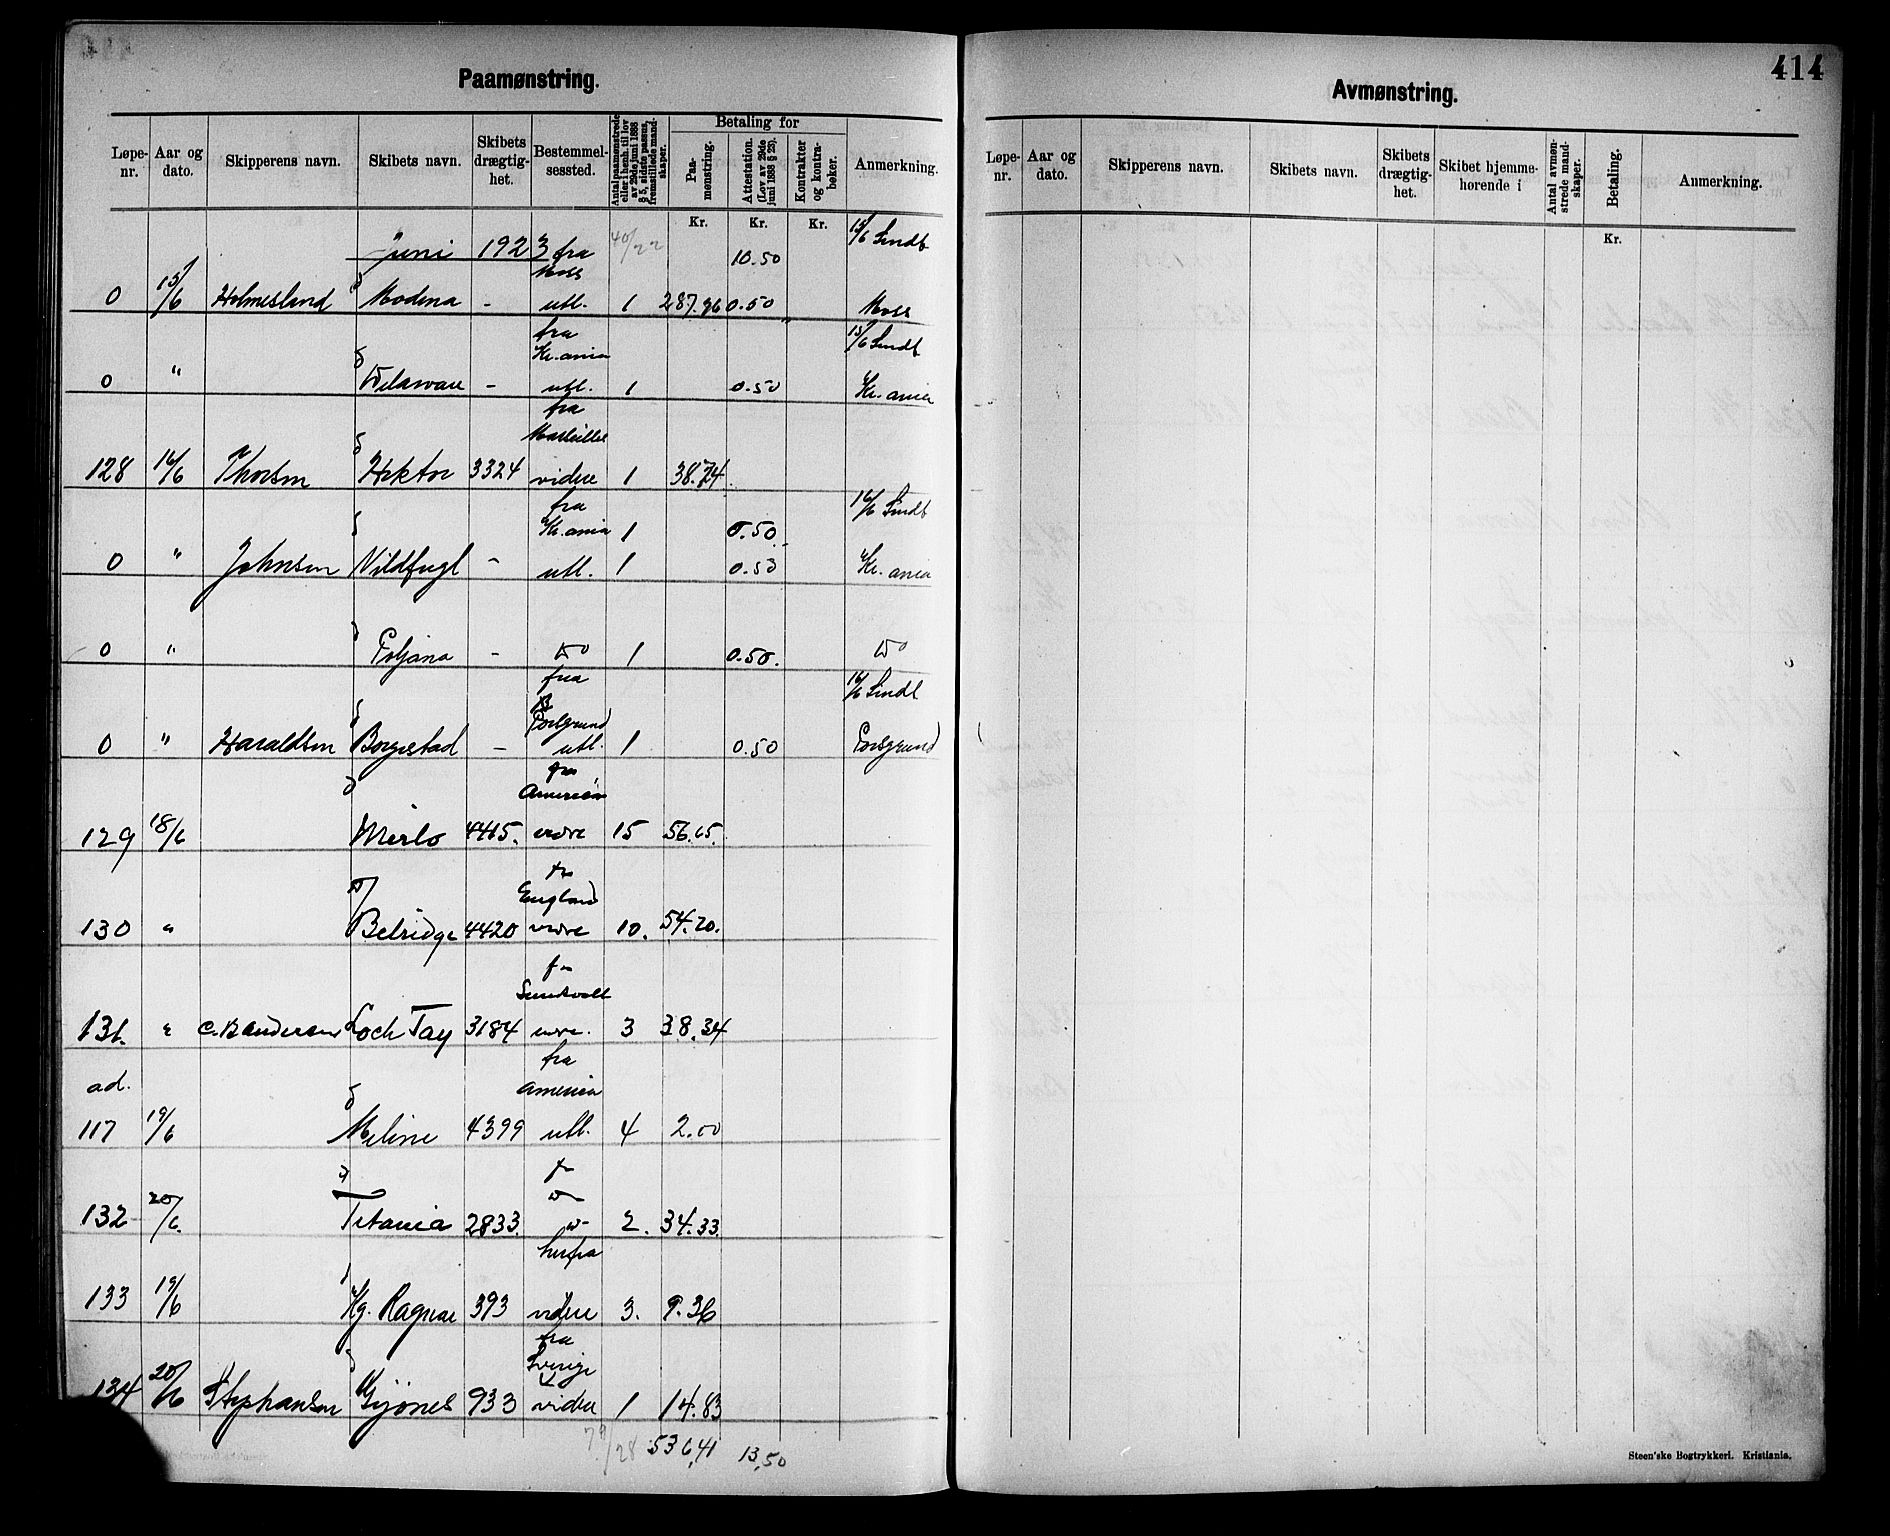 414
Paamønstring.
Løpe-nr. Aar og dato. Skipperens navn. Skibets navn. Skibets drægtig-het. Bestemmel-sessted. Antal paamønstrede eller i henh. til lov av 29de juni 1888 § 5, sidste passus, fremstillede mand-skaper. Betaling for Paa-mønstring. Attestation. (Lov av 29de juni 1888 § 29). Kontrakter og kontra-bøker. Anmerkning.
Kr. Kr. Kr.
Juni 1923 fra 40/22 10.50 15/6 Sendt
Moss
0 15/6 Holmesland Modena - utl. 1 287.96 0.50 " Moss
fra 15/6 Sendt
Kr.ania
0 " Delaware - utl. 1 0.50 Kr.ania
fra
128 16/6 Thorsen Hektor 3324 videre 1 38.74
fra 16/6 Sendt
Kr.ania 1 0.50
0 " Johnsen Vildfugl - utl. 1 0.50 Kr.ania
0 " Poljana - Do 1 0.50. Do
fra 16/6 Sendt
Porsgrund
0 " Haraldsen Borgestad - utl. 1 0.50 Porsgrund
fra
America
129 18/6 Mirlo 4415. vidre 15 56.65.
fra
England
130 " Belridge 4420 vidre 10. 54.20.
fra
Sundsvall
131. " C. B Andersen Loch Tay 3184 vidre. 3 38.34
ad. fra
America
117 19/6 Meline 4399 utl. 4 2.00
fra
132 20/6. Titania 2833. 2. 34.33.
herfra
133 19/6 Kg. Ragnar 393 videre 3. 9.36
fra
Sverige
134 20/6 Stephansen Gjønes 933 videre 1 14.83
79/28 536,41 13,50
Avmønstring.
Løpe-nr. Aar og dato. Skipperens navn. Skibets navn. Skibets drægtig-het. Skibet hjemme-hørende i Antal avmøn-strede mand-skaper. Betaling. Anmerkning.
Kr.
Steen'ske Bogtrykkeri. Kristiania.